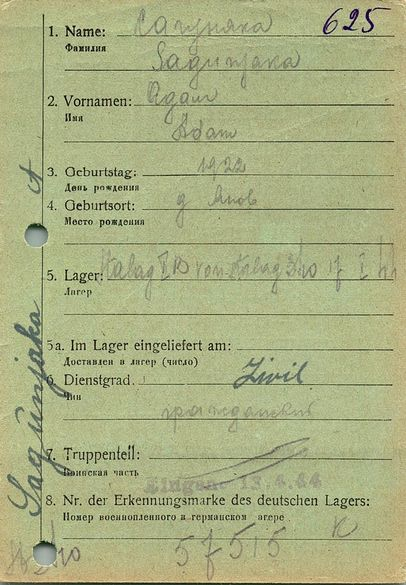 625
1. Name:
Фамилия
Sagunjaka
2. Vornamen: Адам
Имя
Adam
3. Geburtstag: 1922
День рождения
4. Geburtsort: д
Место рождения
5. Lager: Stalag I B von Stalag
Лагер
5a. Im Lager eingeliefert am:
Доставлен в лагер (число)
6. Dienstgrad. Zivil
Чин гражданский
7. Truppenteil:
Воинская часть
Eingang 13.4.44
8. Nr. der Erkennungsmarke des deutschen Lagers:
Номер военнопленного в германском лагере
57515 K
Sagunjaka A